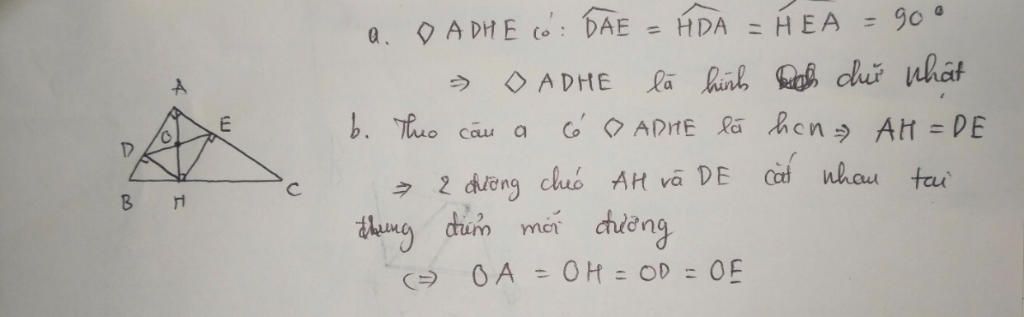 a. ◇ ADHE có: DAE = HDA = HEA = 90°
⇒ ◇ ADHE là hình chữ nhật
b. Theo câu a có ◇ ADHE là hcn ⇒ AH = DE
⇒ 2 đường chéo AH và DE cắt nhau tại
trung điểm mỗi đường
(⇒ OA = OH = OD = OE
A
E
O
D
B
H
C